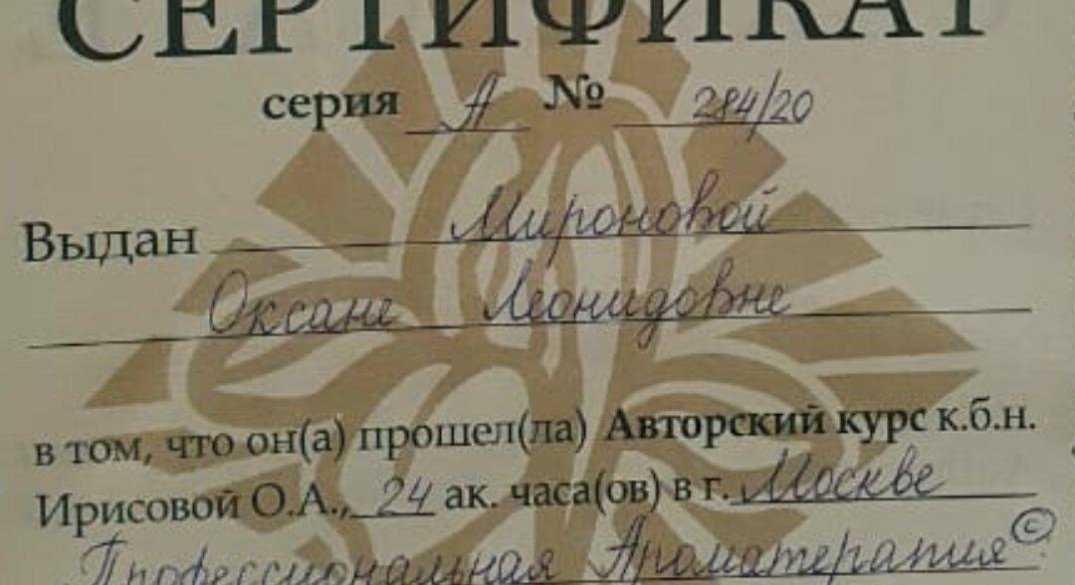 СЕРТИФИКАТ
серия А № 284/20
Выдан Мироновой
Оксане Леонидовне
в том, что он(а) прошел(ла) Авторский курс к.б.н.
Ирисовой О.А., 24 ак. часа(ов) в г. Москве
Профессиональная Ароматерапия ©